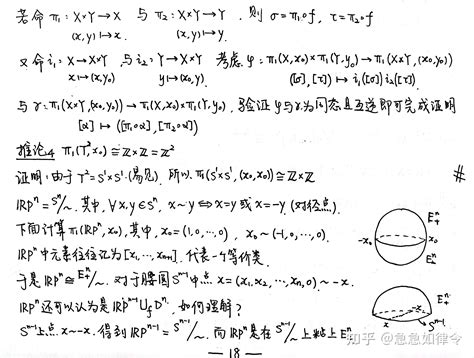 若命 π₁: X×Y→X 与 π₂: X×Y→Y , 则 σ=π₁∘f, τ=π₂∘f
(x,y)↦x. (x,y)↦y.
又命 i₁: X→X×Y 与 i₂: Y→X×Y 考虑 φ: π₁(X,x₀)×π₁(Y,y₀)→π₁(X×Y,(x₀,y₀))
x↦(x,y₀) y↦(x₀,y). ([σ],[τ])↦i₁([σ])i₂([τ])
与 γ: π₁(X×Y,(x₀,y₀))→π₁(X,x₀)×π₁(Y,y₀). 验证 φ与γ为同态且互逆即可完成证明
[α]↦([π₁∘α],[π₂∘α])
推论4 π₁(T²,x₀)≅ℤ×ℤ=ℤ²
证明: 由于 T²=S¹×S¹ (易见). 所以 π₁(S¹×S¹,(x₀,x₀))≅ℤ×ℤ #
ℝPⁿ=Sⁿ/∼. 其中, ∀x,y∈Sⁿ, x∼y⇔x=y 或 x=-y (对径点).
下面计算 π₁(ℝPⁿ,x₀), 其中, x₀=(1,0,…,0), x₀∼(-1,0,…,0)
ℝPⁿ中元素往往记为[x₁,…,xₙ₊₁]. 代表一个等价类.
于是 ℝPⁿ≅Eⁿ₊/∼. 对于腰圆Sⁿ⁻¹中点 x=(x₁,x₂,…,xₙ,0)∼-x.
ℝPⁿ还可以认为是 ℝPⁿ⁻¹∪_f Dⁿ. 如何理解?
Sⁿ⁻¹上点 x∼-x. 得到 ℝPⁿ⁻¹=Sⁿ⁻¹/∼. 而 ℝPⁿ 是在 Sⁿ⁻¹/∼ 上粘上 Eⁿ₊
Eⁿ₊
-x₀ x₀
Eⁿ₋
Eⁿ₊
-x x
— 18 —
知乎 @急急如律令